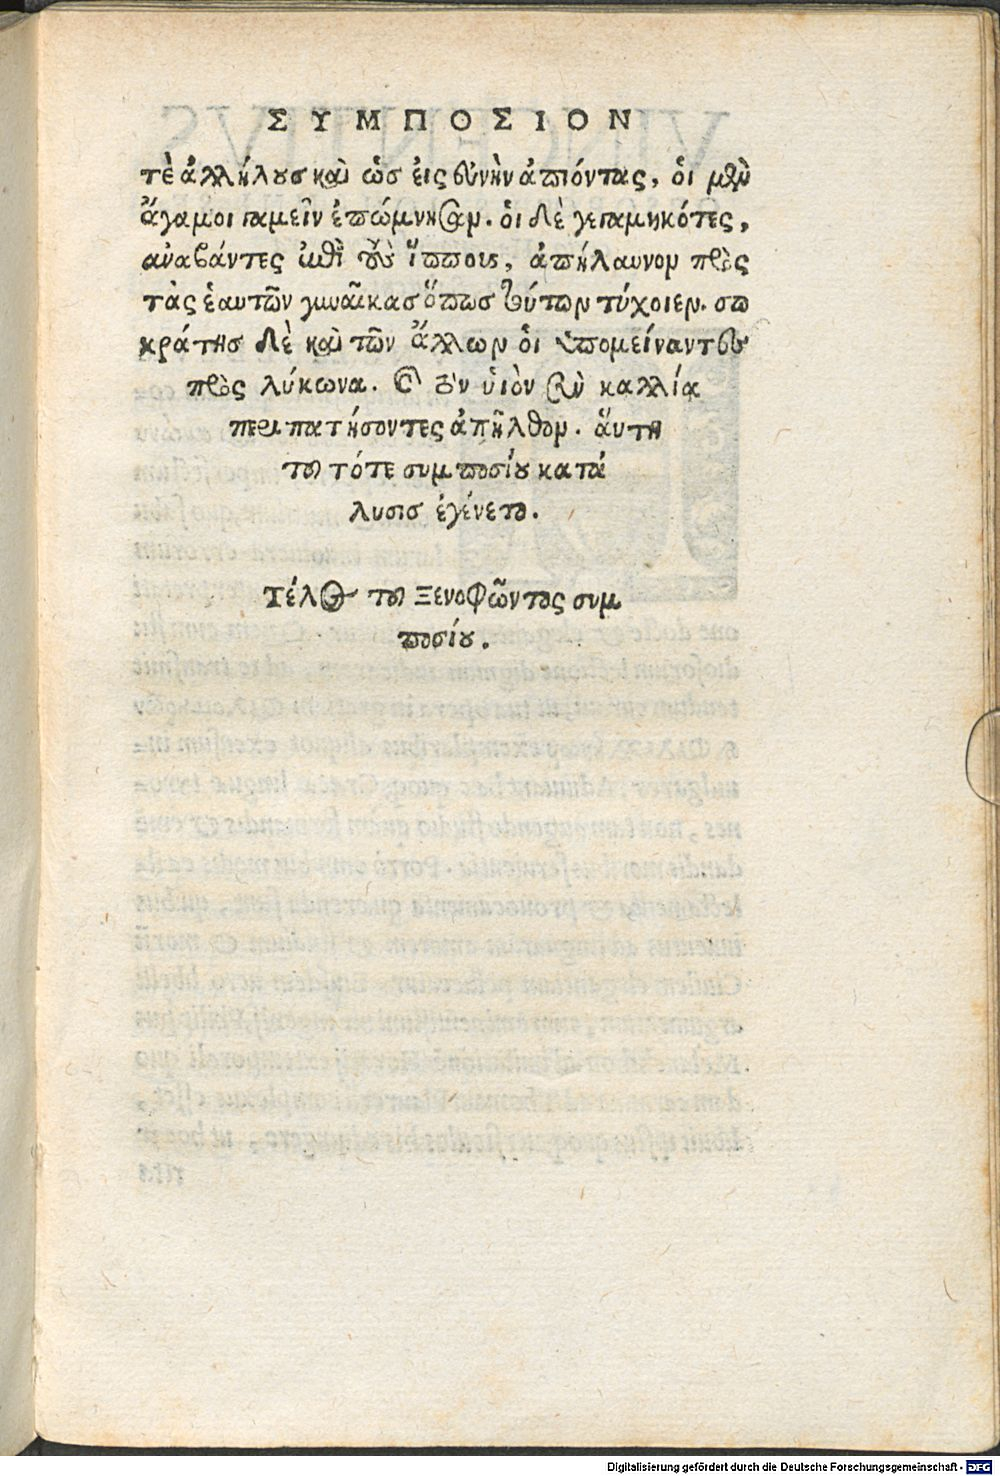 ΣΥΜΠΟΣΙΟΝ
τὲ ἀλλήλουσ καὶ ὡσ εἰς εὐνὴν ἀπιόντας, ὁι μὲν
ἄγαμοι γαμεῖν ἐπώμνυσαν. ὁι δὲ γεγαμηκότες,
αναβάντες ἐπὶ τοὺσ ἵππους, ἀπήλαυνον πρὸς
τὰς ἑαυτῶν γυναῖκασ ὅπωσ τούτων τύχοιεν. σω
κράτησ δὲ καὶ τῶν ἄλλων ὁι ὑπομείναντες
πρὸς λύκωνα. καὶ τὸν ὑιὸν σὺν καλλίᾳ
περιπατήσοντες ἀπῆλθον. ἅυτη
του τότε συμποσίου κατά
λυσισ ἐγένετο.
Τέλος του Ξενοφῶντος συμ
ποσίου.
Digitalisierung gefördert durch die Deutsche Forschungsgemeinschaft - DFG